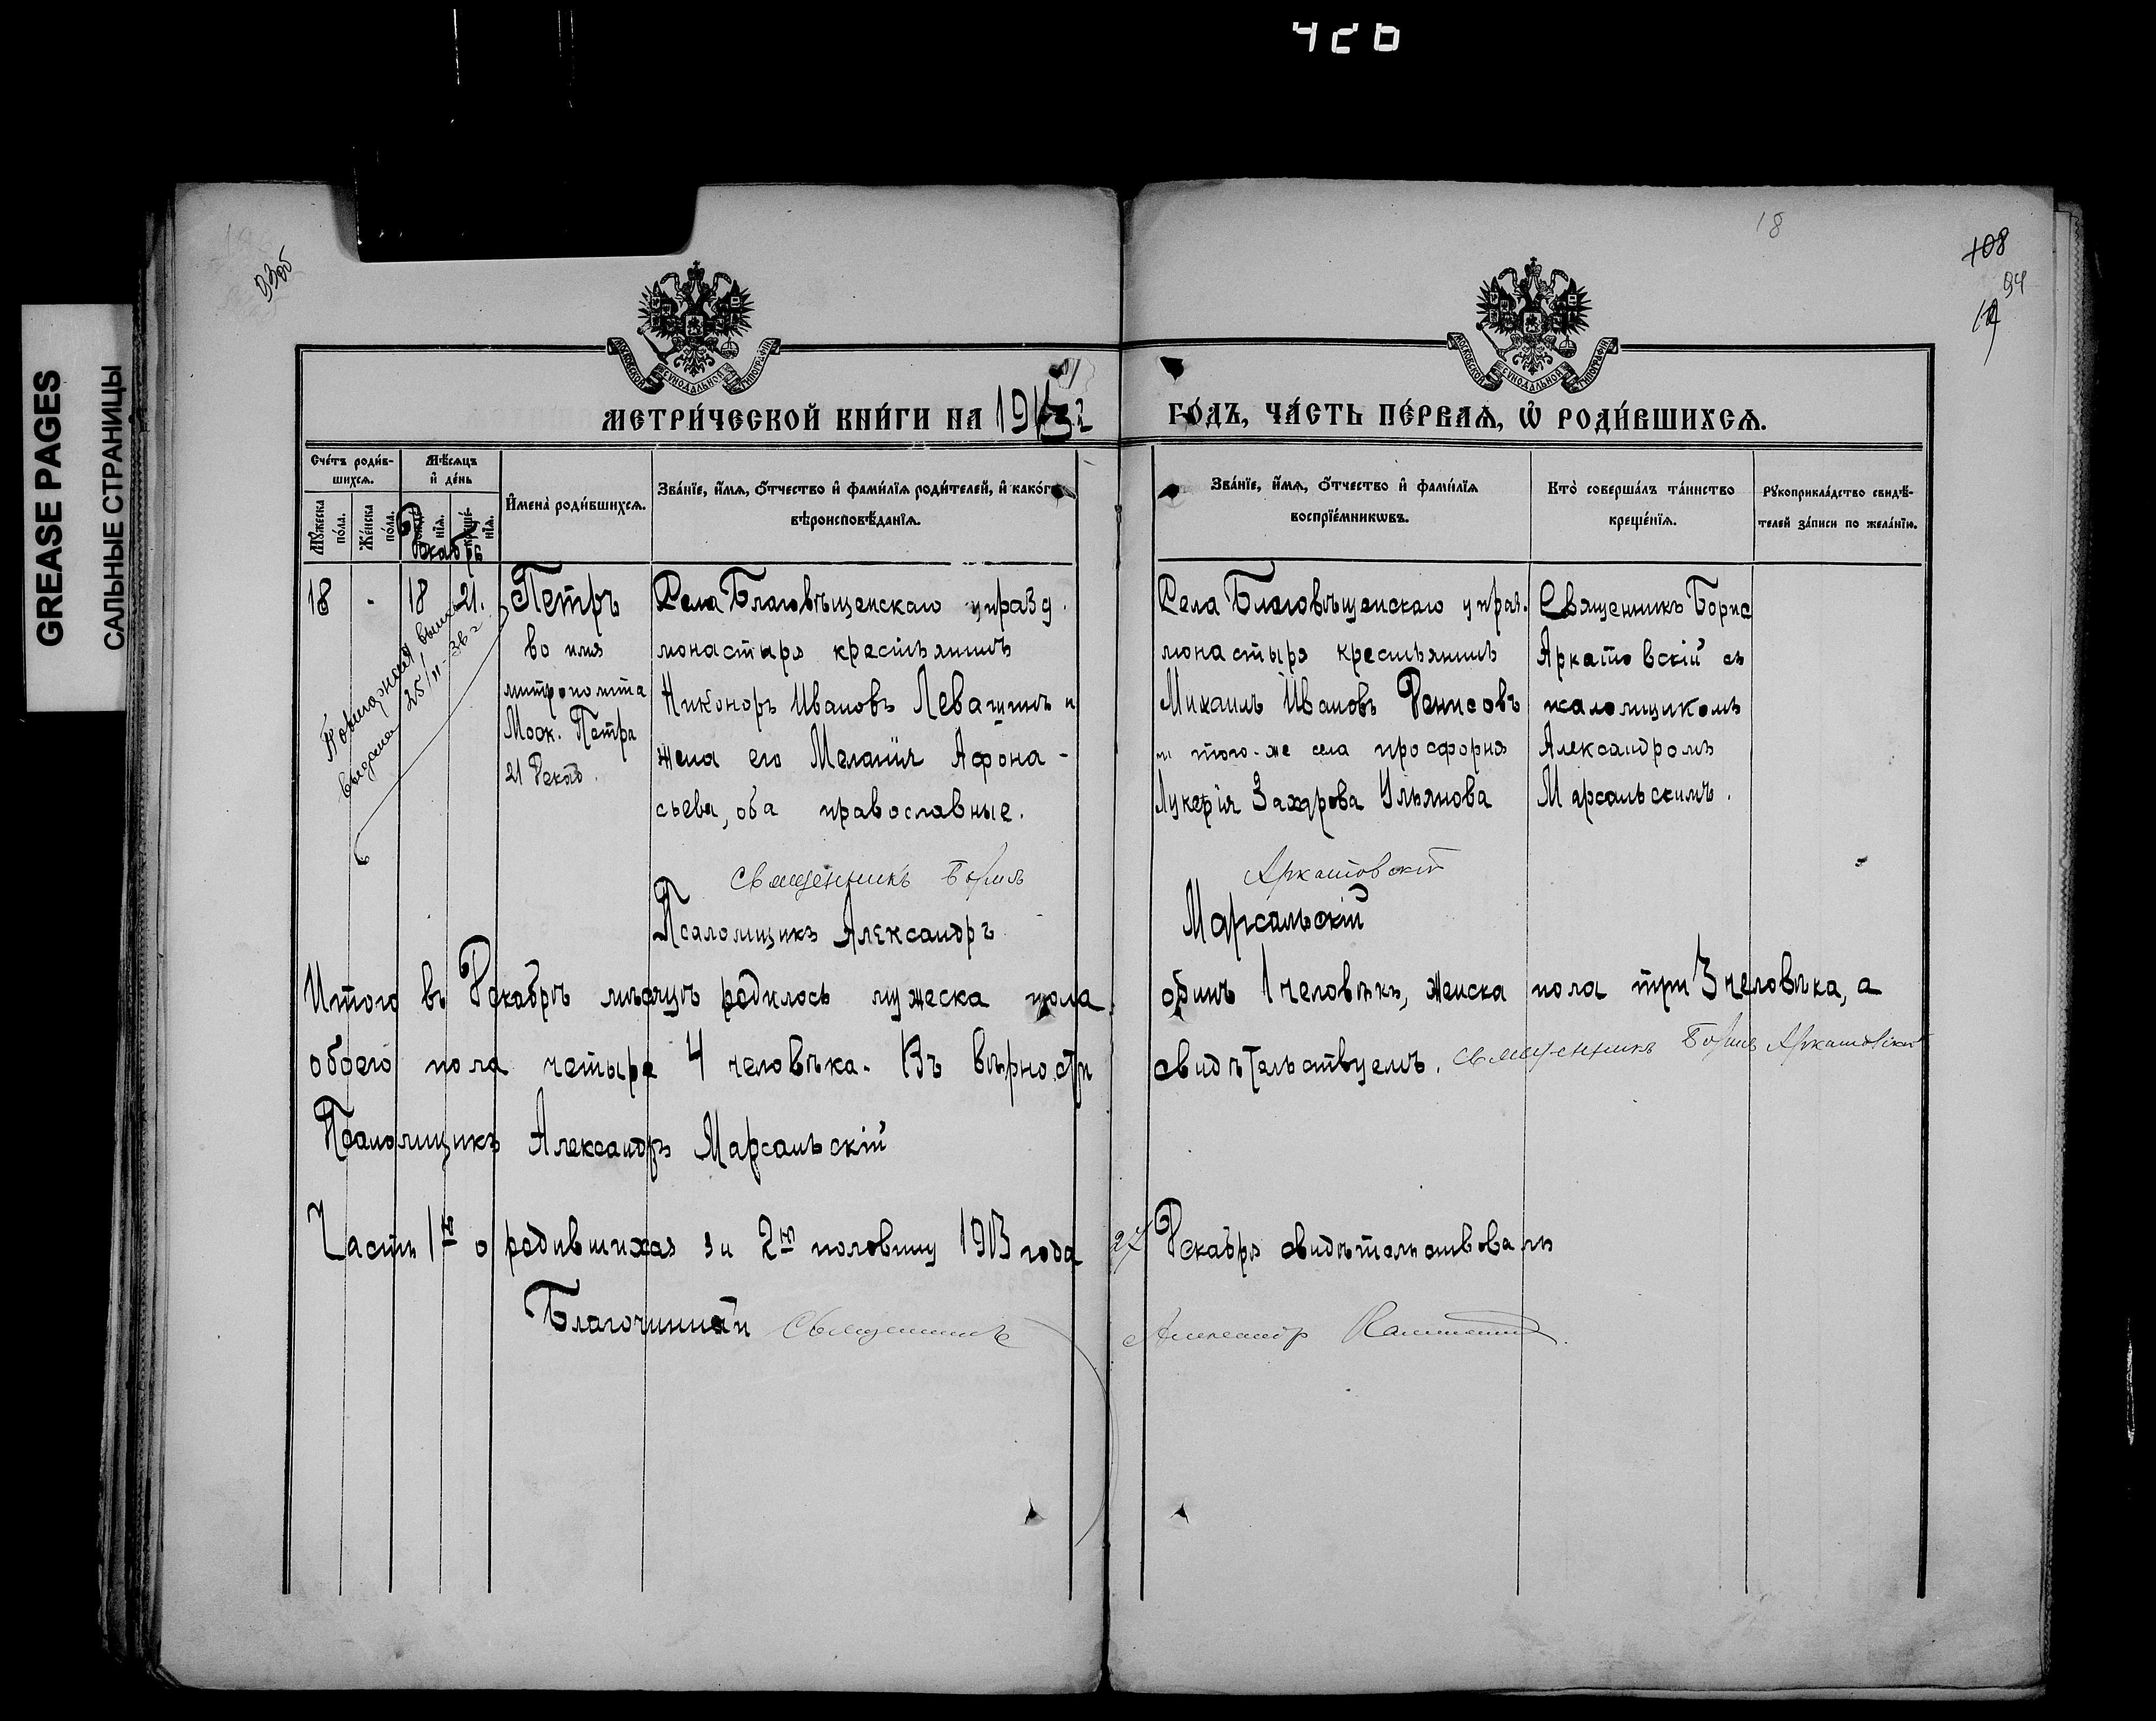 GREASE PAGES
САЛЬНЫЕ СТРАНИЦЫ
93об
18
108
94
МОСКОВСКОЙ СѴНОДАЛЬНОЙ ТИПОГРАФІИ
МОСКОВСКОЙ СѴНОДАЛЬНОЙ ТИПОГРАФІИ
МЕТРИ́ЧЕСКОЙ КНИ́ГИ НА 1913 ГО́ДЪ, ЧА́СТЬ ПЕ́РВАѦ, Ѡ҆ РОДИ́ВШИХСѦ.
Сче́тъ роди́в-
шихсѧ.
Мꙋ́жеска по́ла.
Же́нска по́ла.
Мѣ́сѧцъ
и҆ де́нь
рожде́нїѧ.
креще́нїѧ.
Декабрь
И҆мена̀ роди́вшихсѧ.
Зва́нїе, и҆́мѧ, ѻ҆́тчество и҆ фами́лїѧ роди́телей, и҆ како́гѡ
вѣроисповѣ́данїѧ.
Зва́нїе, и҆́мѧ, ѻ҆́тчество и҆ фами́лїѧ
воспрїе́мникѡвъ.
Кто̀ соверша́лъ та́инство
креще́нїѧ.
Рꙋкоприкла́дство свидѣ́-
телей за́писи по жела́нїю.
18 - 18 21.
Петръ
во имя
митрополита
Моск. Петра
21 Декаб.
Села Благовѣщенскаго упразд.
монастыря крестьянинъ
Никоноръ Ивановъ Левашинъ и
жена его Меланія Афона-
сьева, оба православные.
Села Благовѣщенскаго упраз.
монастыря крестьянинъ
Михаилъ Ивановъ Денисовъ
и того-же села просфорня
Лукерія Захарова Ульянова
Священникъ Борис
Аркатовскій съ
псаломщикомъ
Александромъ
Марсальскимъ.
выдана 25/II-36 г.
Священникъ Борисъ Аркатовскій
Псаломщикъ Александръ Марсальскій
Итого въ Декабрѣ мѣсяцѣ родилось мужеска пола одинъ 1 человѣкъ, женска пола три 3 человѣка, а
обоего пола четыре 4 человѣка. Въ вѣрности свидѣтельствуемъ. Священникъ Борисъ Аркатовскій
Псаломщикъ Александръ Марсальскій
Часть 1ю о родившихся за 2ю половину 1913 года 27 Декабря свидѣтельствовалъ
Благочинный Священникъ Александръ